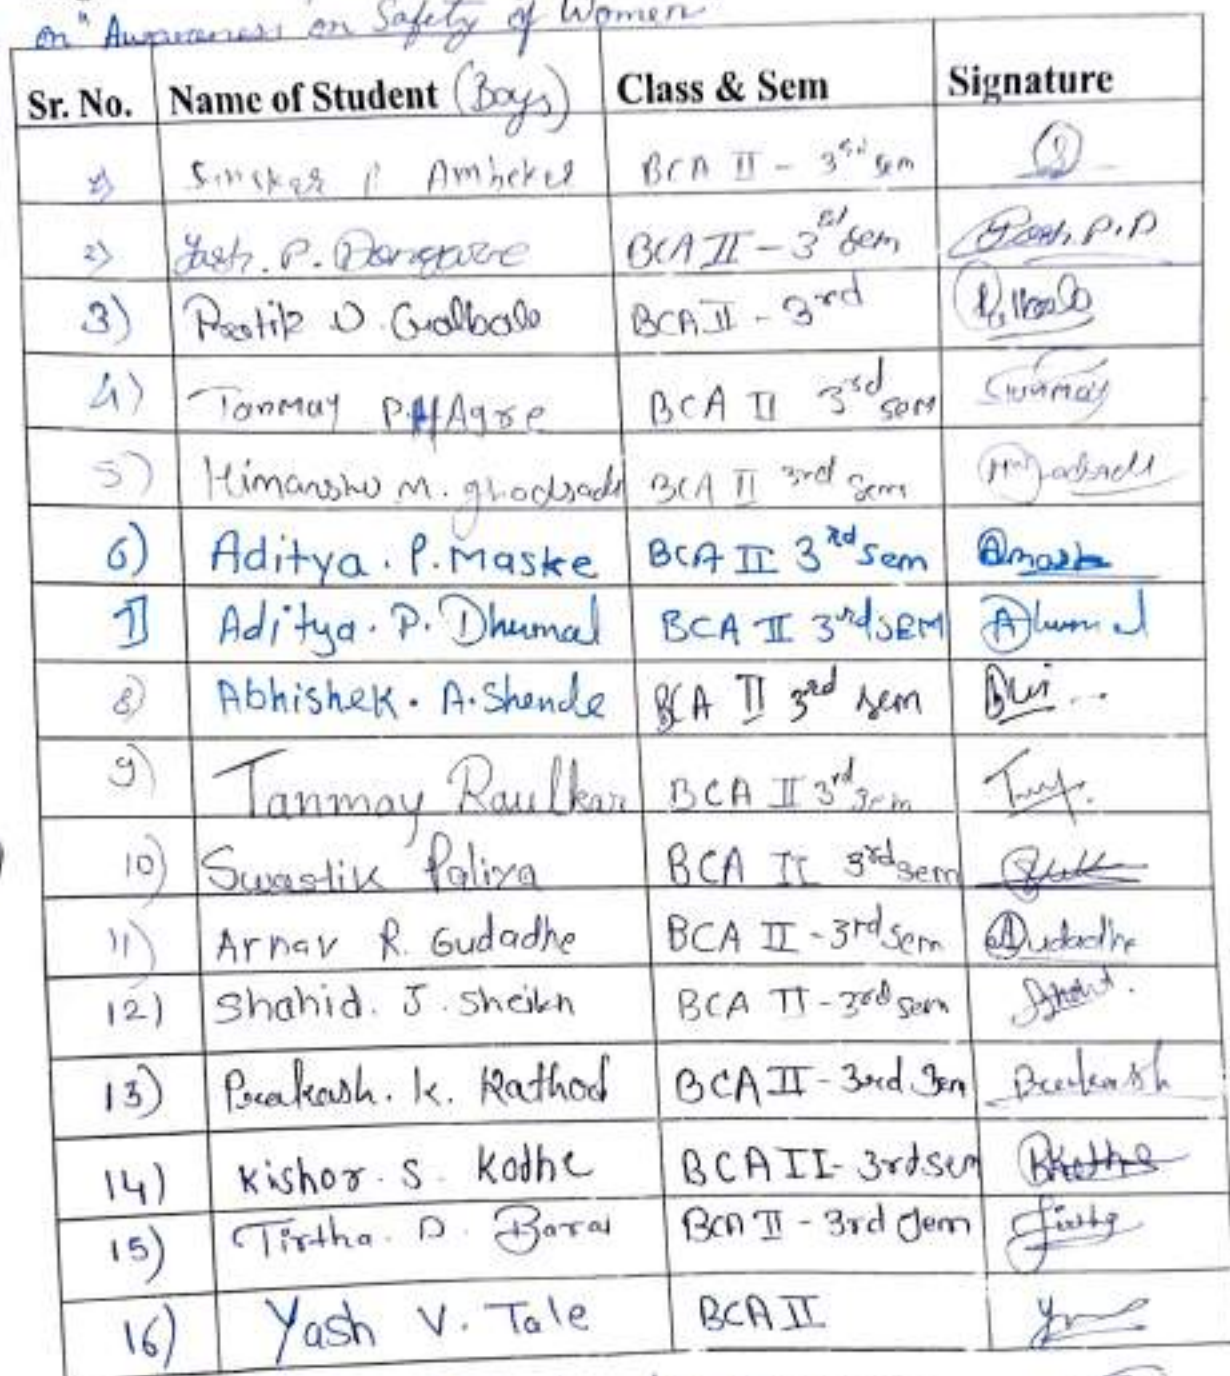 on "Awareness on Safety of Women
Sr. No. Name of Student (Boys) Class & Sem Signature
1) P. Ambekar BCA II - 3rd sem
2) Yash. P. Dongare BCA II - 3rd sem Yash P.D
3) Pratik D. Galbale BCA II - 3rd
4) Tanmay P. Agre BCA II 3rd sem Tanmay
5) Himanshu M. ghodsade BCA II 3rd sem
6) Aditya. P. Maske BCA II 3rd sem Amaske
7] Aditya. P. Dhumal BCA II 3rd SEM ADhumal
8) Abhishek. A. Shende BCA II 3rd sem
9) Tanmay Raulkar BCA II 3rd sem
10) Swastik Paliya BCA II 3rd sem
11) Arnav R. Gudadhe BCA II - 3rd sem AGudadhe
12) Shahid. J. Sheikh BCA II - 3rd sem
13) Prakash. K. Rathod BCA II - 3rd Sem Prakash
14) Kishor. S. Kodhe BCA II - 3rd sem
15) Tirtha. D. Barai BCA II - 3rd Sem Tirtha
16) Yash V. Tale BCA II